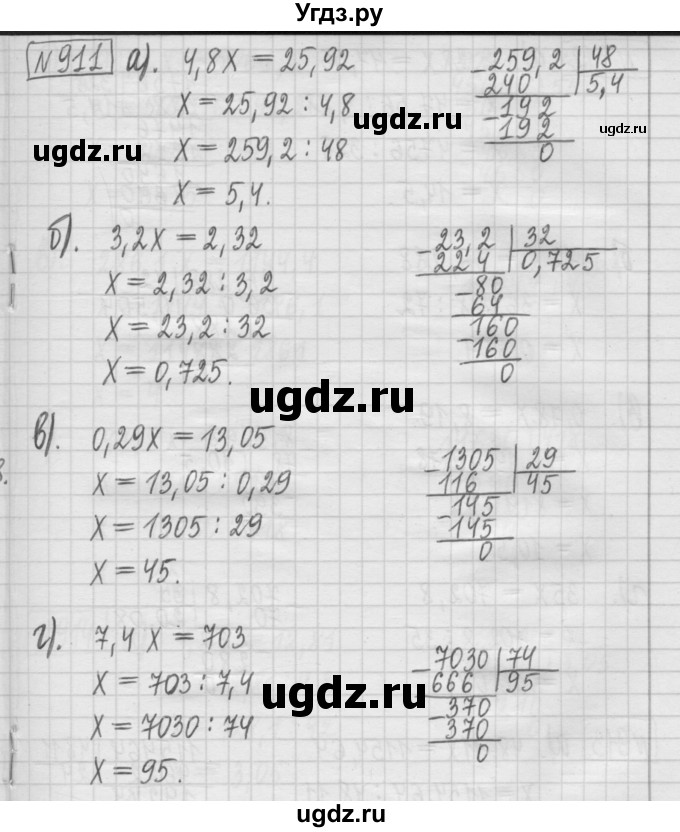 Угдз.ру
№911 а). 4,8х = 25,92
х = 25,92 : 4,8
х = 259,2 : 48
х = 5,4.
259,2 | 48
240 5,4
192
192
0
б). 3,2х = 2,32
х = 2,32 : 3,2
х = 23,2 : 32
х = 0,725.
23,2 | 32
22 4 0,725
80
64
160
160
0
в). 0,29х = 13,05
х = 13,05 : 0,29
х = 1305 : 29
х = 45.
1305 | 29
116 45
145
145
0
г). 7,4 х = 703
х = 703 : 7,4
х = 7030 : 74
х = 95.
7030 | 74
666 95
370
370
0
ugdz.ru
ugdz.ru
ugdz.ru
ugdz.ru
ugdz.ru
ugdz.ru
ugdz.ru
ugdz.ru